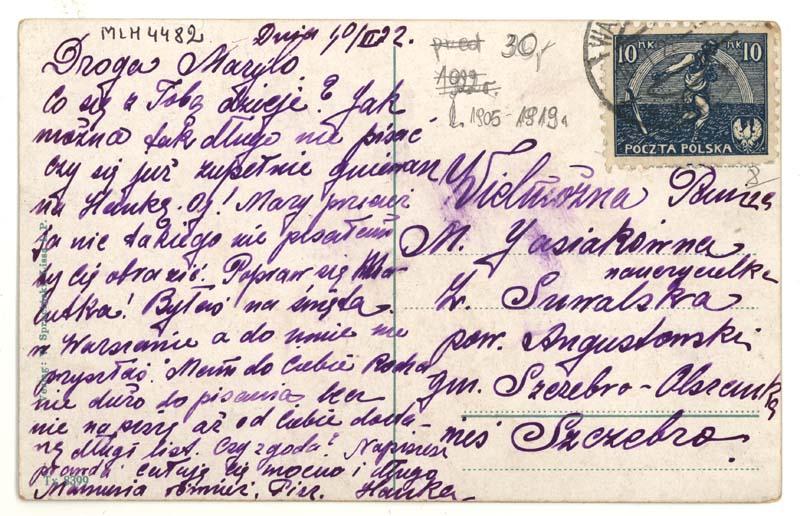 MLH 4482
Dnia 10/II 22.
Droga Marylo
Co się z Tobą dzieje? Jak
można tak długo nie pisać
czy się już zupełnie gniewasz
na Hankę. Oj! Mary przecież
Ja nic takiego nie pisałam
by Cię obrazić. Popraw się Ma-
lutka! Byłaś na święta
w Warszawie a do mnie nie
przyszłaś. Mam do Ciebie Kocha
nie dużo do pisania lecz
nie napiszę aż od Ciebie dosta-
nę długi list. Czy zgoda? Napiszesz
prawda całuję Cię mocno i długo
Mamusia również. Pisz. Hanka
przed 30,-
1922
L. 1905-1919
10 MK 10
POCZTA POLSKA
WA
Wielmożna Panna
M. Jasiakówna
nauczycielka
Z. Suwalska
pow. Augustowski
gm. Szczebro-Olszanka
wieś Szczebro.
Tx 8399